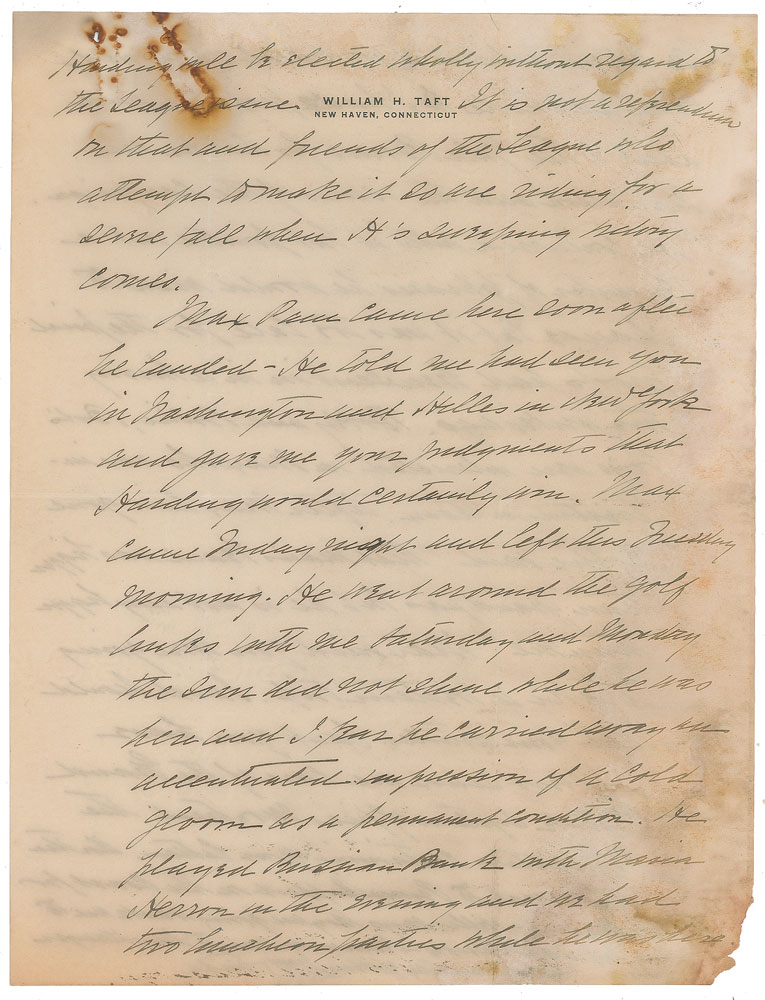 Harding will be elected wholly without regard to
the League issue. It is not a referendum
WILLIAM H. TAFT
NEW HAVEN, CONNECTICUT
on that and friends of the League who
attempt to make it so are riding for a
severe fall when H's sweeping victory
comes.
Max Pam came here soon after
he landed - He told me had seen you
in Washington and Hilles in New York
and gave me your judgments that
Harding would certainly win. Max
came Friday night and left this Tuesday
morning. He went around the golf
links with me Saturday and Monday
the sun did not shine while he was
here and I fear he carried away an
accentuated impression of a cold
gloom as a permanent condition. He
played Russian Bank with Maria
Herron in the evening and we had
two luncheon parties while he was here